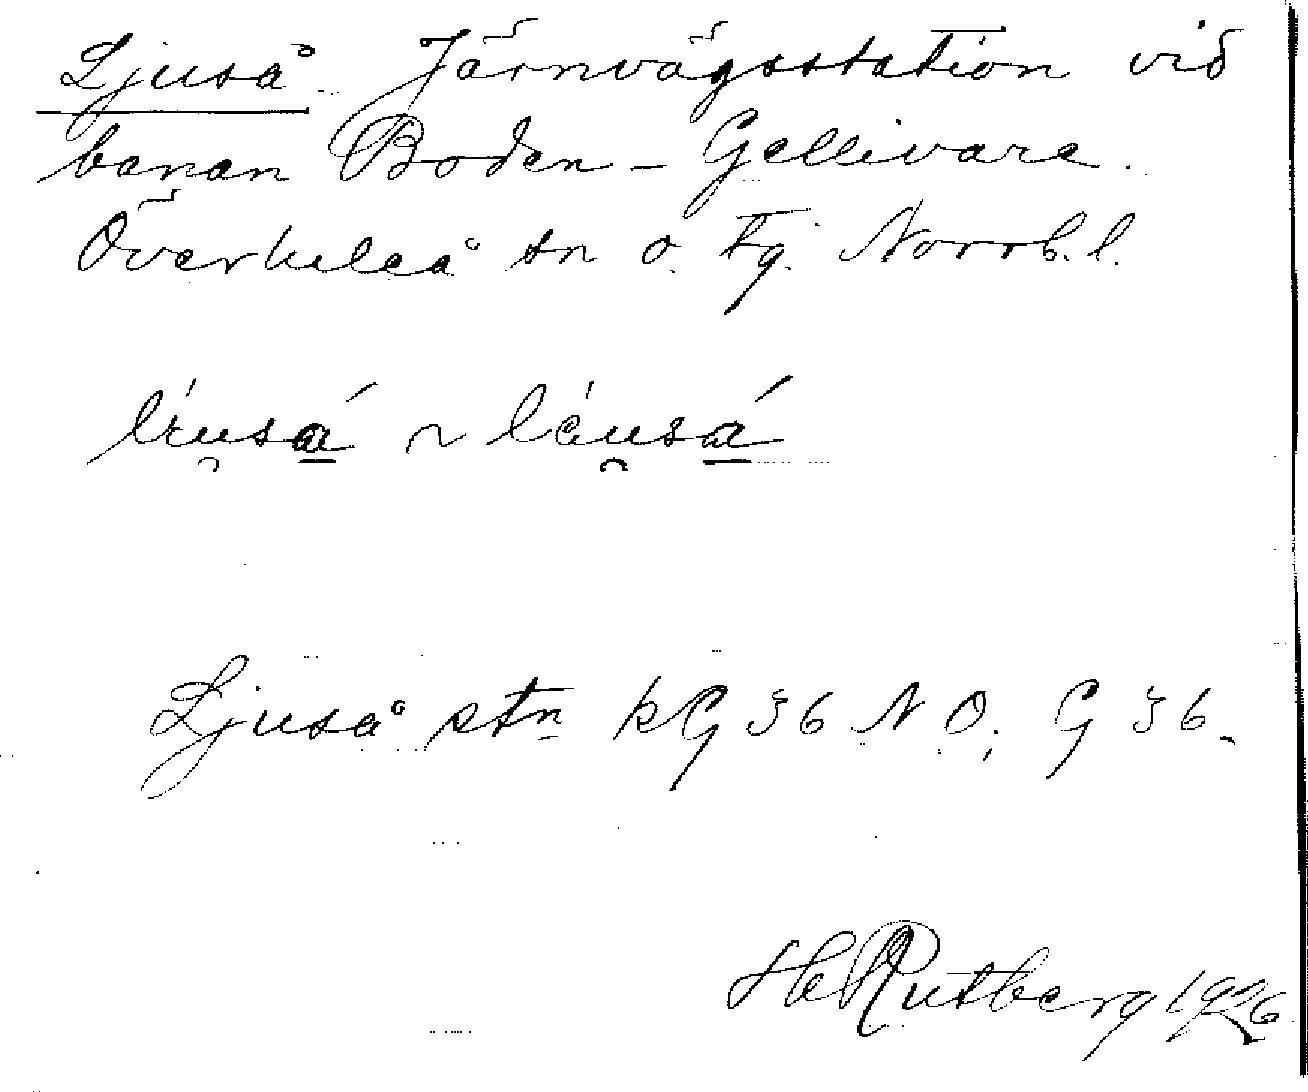 Ljuså. Järnvägsstation vid
banan Boden - Gellivare.
Överluleå sn o. tg. Norrb. l.
Ljuså stn kG 36 N O; G 36.
H Rutberg 1926